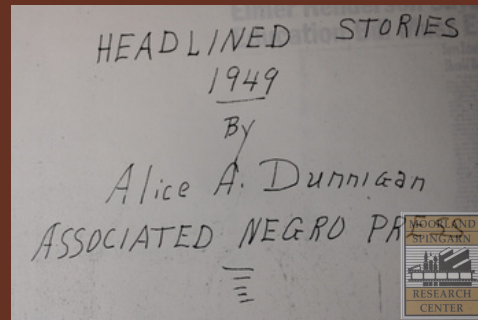 HEADLINED STORIES
1949
By
Alice A. Dunnigan
ASSOCIATED NEGRO PRESS
MOORLAND
SPINGARN
RESEARCH
CENTER